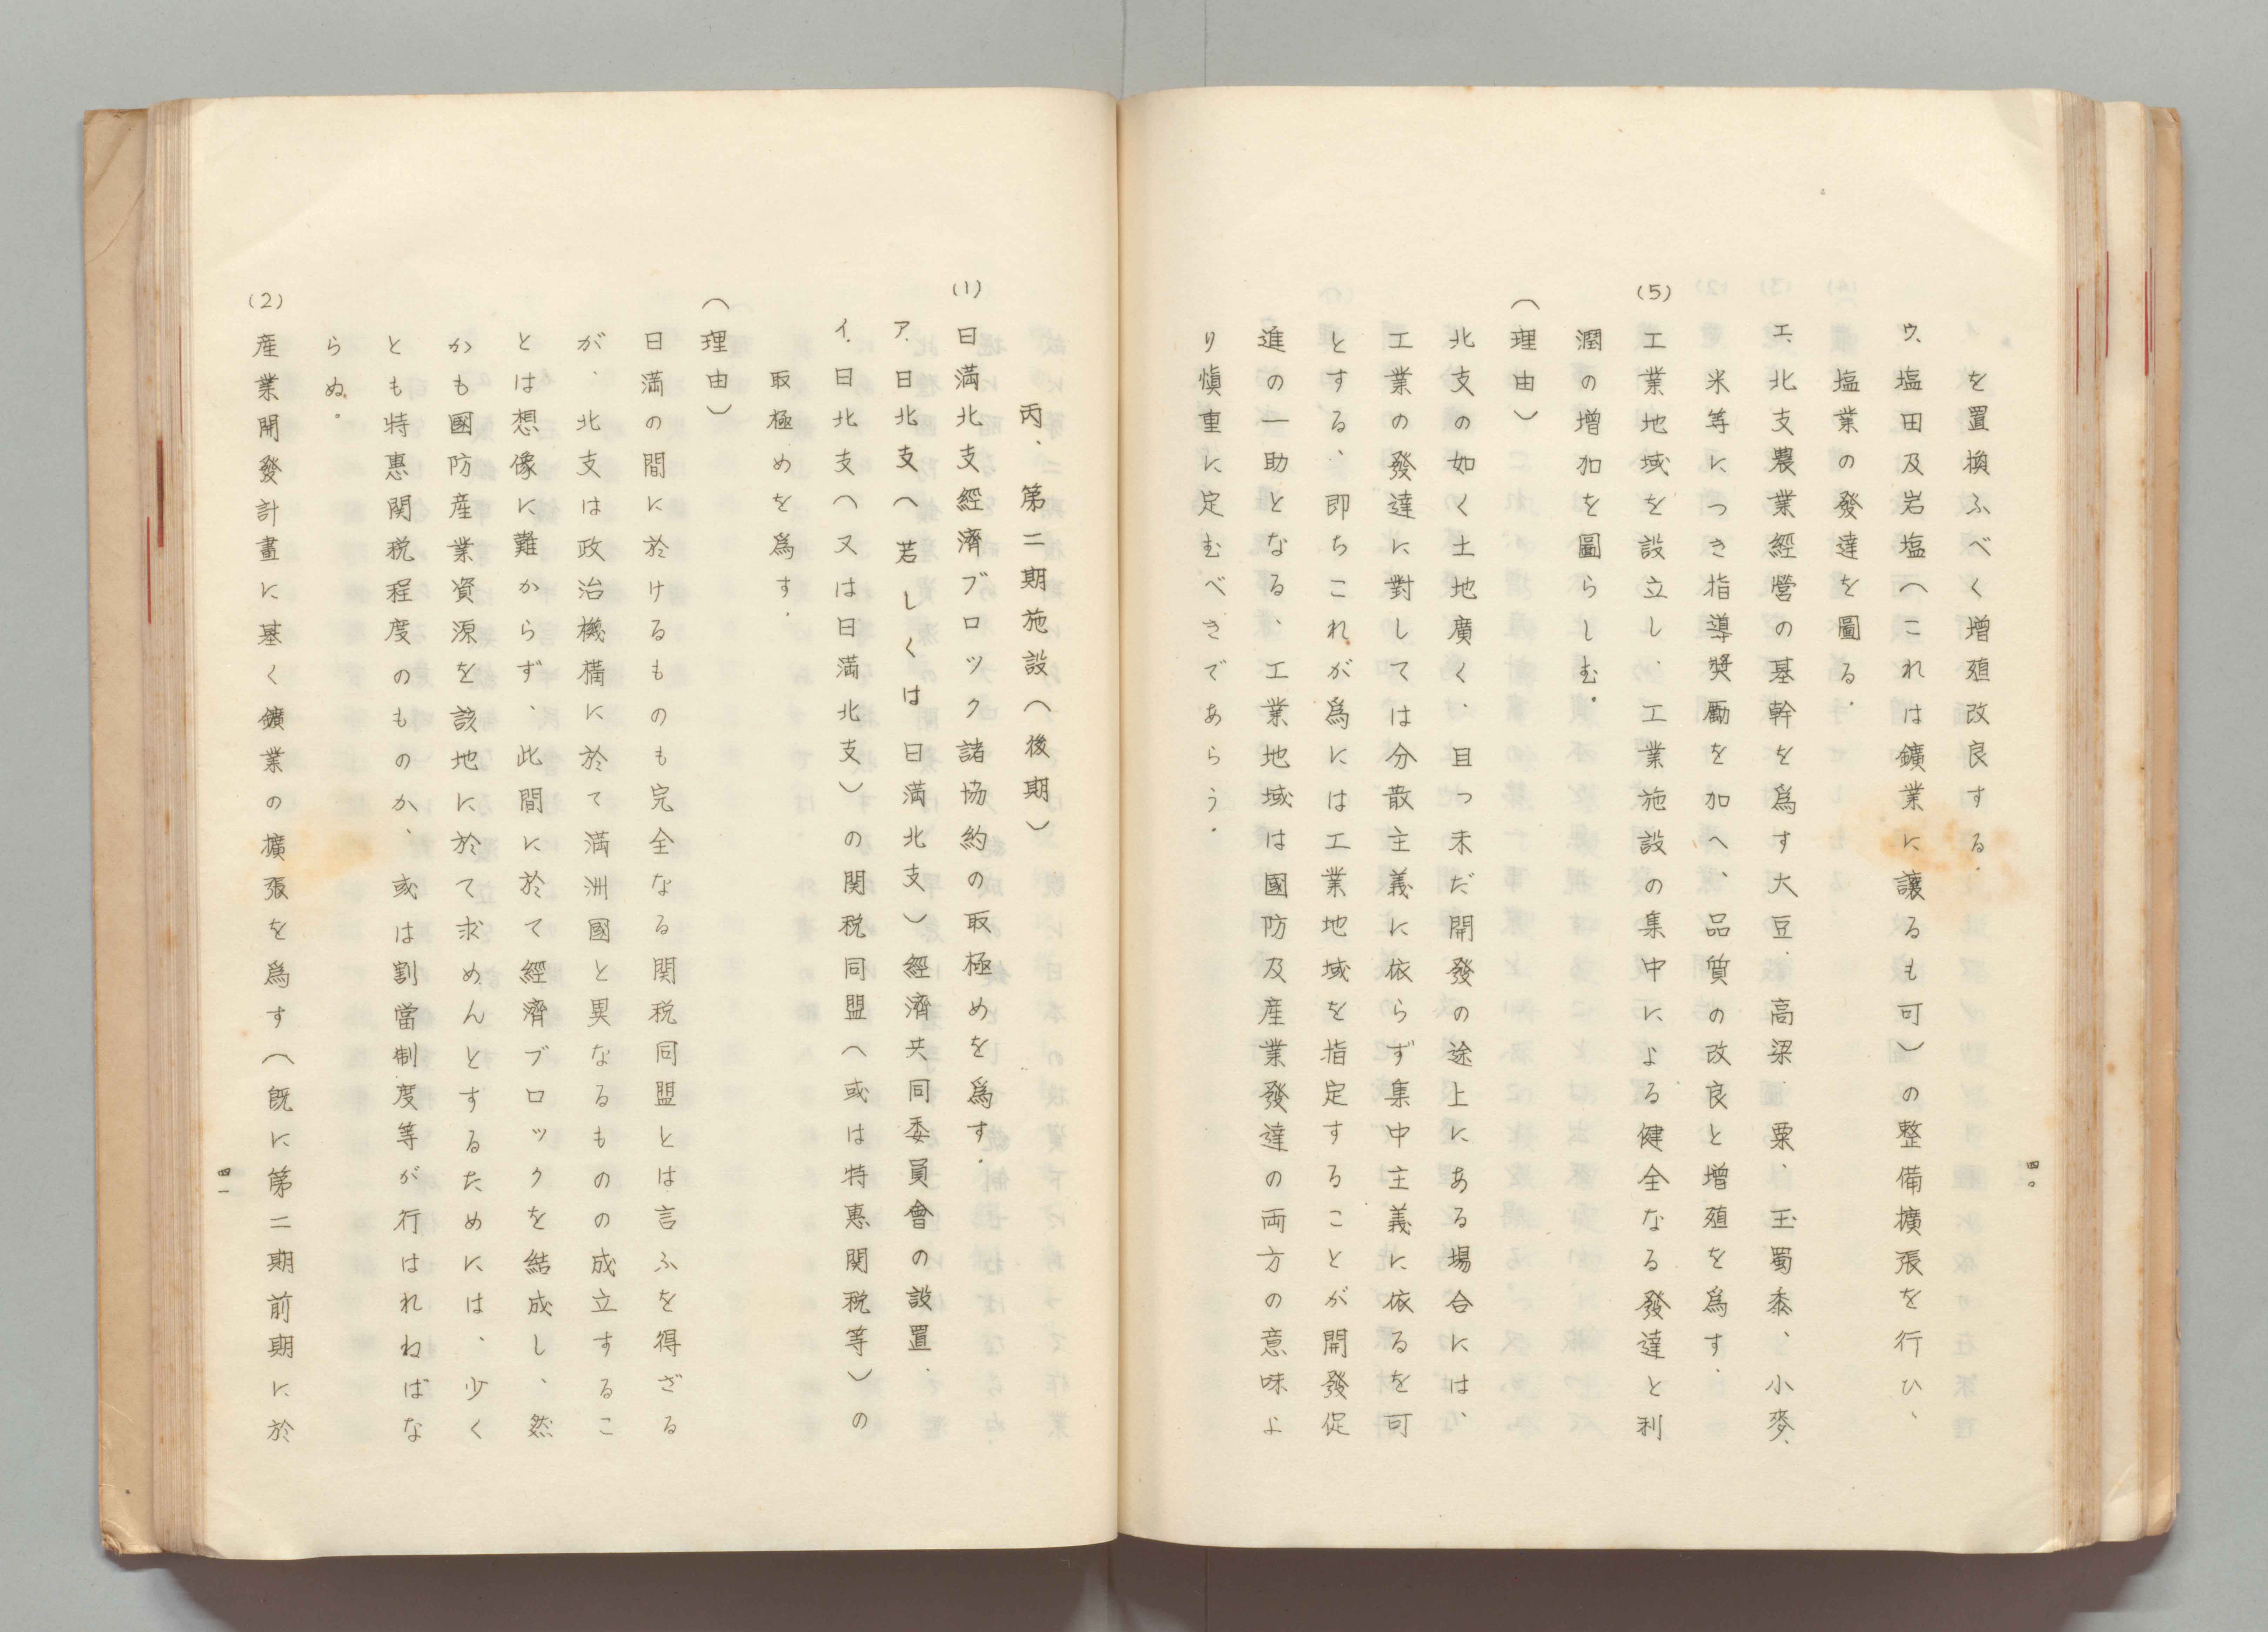 を置換ふべく増殖改良する.
ウ、塩田及岩塩(これは鑛業に譲るも可)の整備擴張を行ひ、
塩業の發達を圖る.
エ、北支農業經營の基幹を爲す大豆、高梁、粟、玉蜀黍、小麥、
米等につき指導奬勵を加へ、品質の改良と増殖を爲す.
(5)工業地域を設立し、工業施設の集中による健全なる發達と利
潤の増加を圖らしむ。
(理由)
北支の如く土地廣く、且つ未だ開發の途上にある場合には、
工業の發達に對しては分散主義に依らず集中主義に依るを可
とする、即ちこれが爲には工業地域を指定することが開發促
進の一助となる、工業地域は國防及産業發達の両方の意味よ
り愼重に定むべきであらう.
四〇
丙、第二期施設(後期)
(1)日満北支經濟ブロック諸協約の取極めを爲す.
ア.日北支(若しくは日満北支)經濟共同委員會の設置.
イ.日北支(又は日満北支)の関税同盟(或は特惠関税等)の
取極めを爲す.
(理由)
日満の間に於けるものも完全なる関税同盟とは言ふを得ざる
が、北支は政治機構に於て満洲國と異なるものの成立するこ
とは想像に難からず、此間に於て經濟ブロックを結成し、然
かも國防産業資源を該地に於て求めんとするためには、少く
とも特惠関税程度のものか、或は割當制度等が行はれねばな
らぬ。
(2)産業開發計畫に基く鑛業の擴張を爲す(既に第二期前期に於
四一